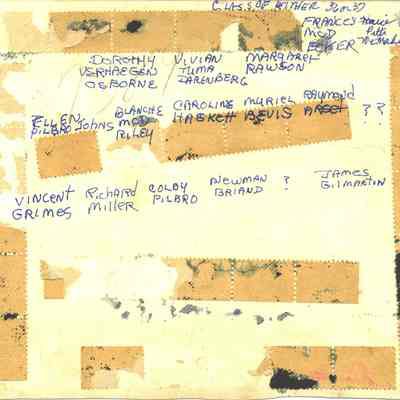 CLASS OF EITHER 36 or 37
FRANCES
MCD
EGGER
DOROTHY VIVIAN MARGARET
VERHAEGEN TUMA RAWSON
OSBORNE DARENBERG
ELLEN BLANCHE CAROLINE MURIEL RAYMOND ? ?
PILBRO Johns MCD HASKELL BEVIS
RILEY
VINCENT Richard COLBY NEWMAN ? JAMES
GRIMES Miller PILBRO BRIAND GILMARTIN